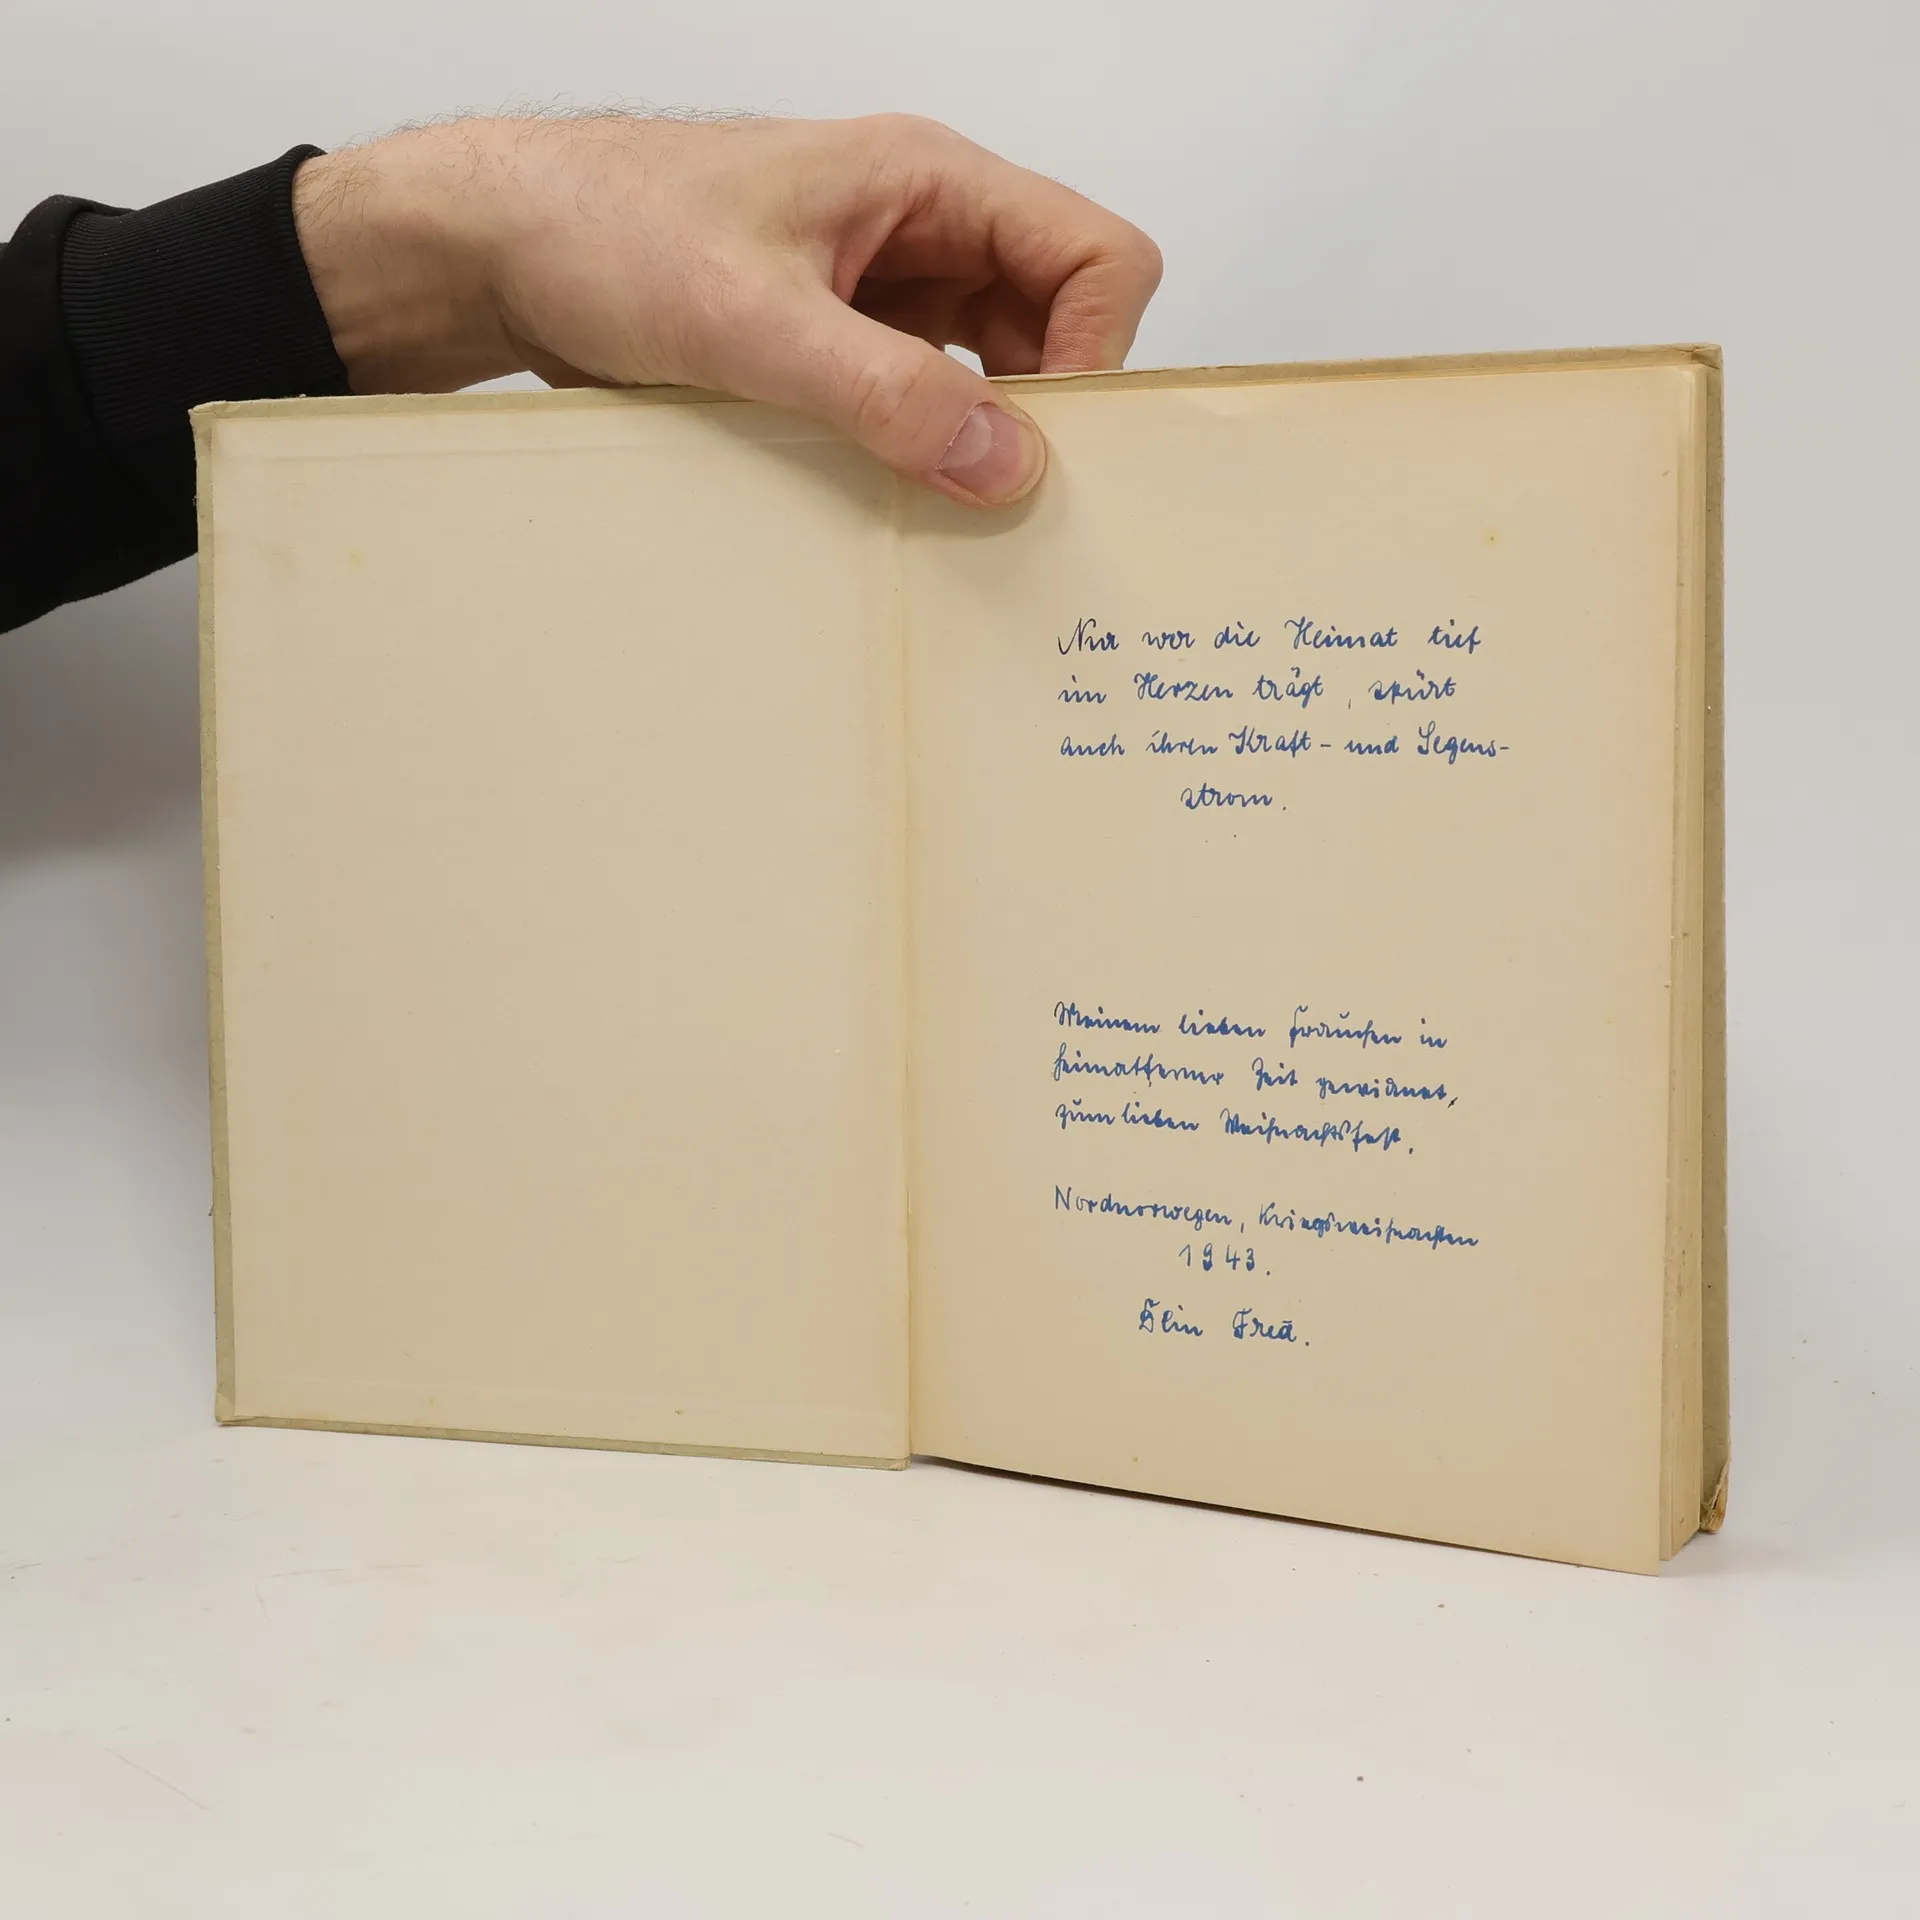 Nur wer die Heimat tief
im Herzen trägt, spürt
auch ihren Kraft- und Segens-
strom.
Meinem lieben Frauchen in
heimatferner Zeit gewidmet,
zum lieben Weihnachtsfest.
Nordnorwegen, Kriegsweihnachten
1943.
Dein Fred.